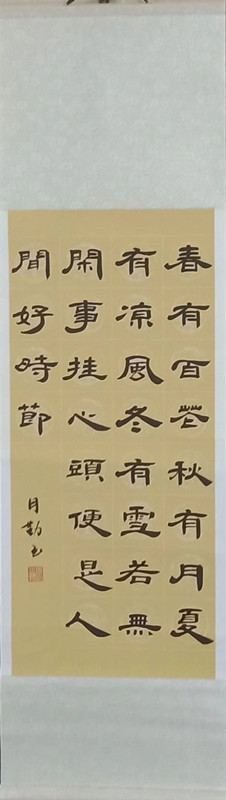 春有百花秋有月夏
有凉風冬有雪若無
閑事挂心頭便是人
間好時節
月勤书